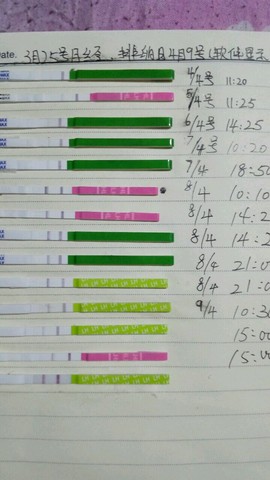 ate. 3月25号月经, 排卵日4月9号(软件显示
4/4号 11:20
5/4号 11:25
6/4号 14:25
7/4号 10:20
7/4 18:50
8/4 10:10
8/4 14:2
8/4 14:2
8/4 21:0
8/4 21:0
9/4 10:30
15:00
15:00